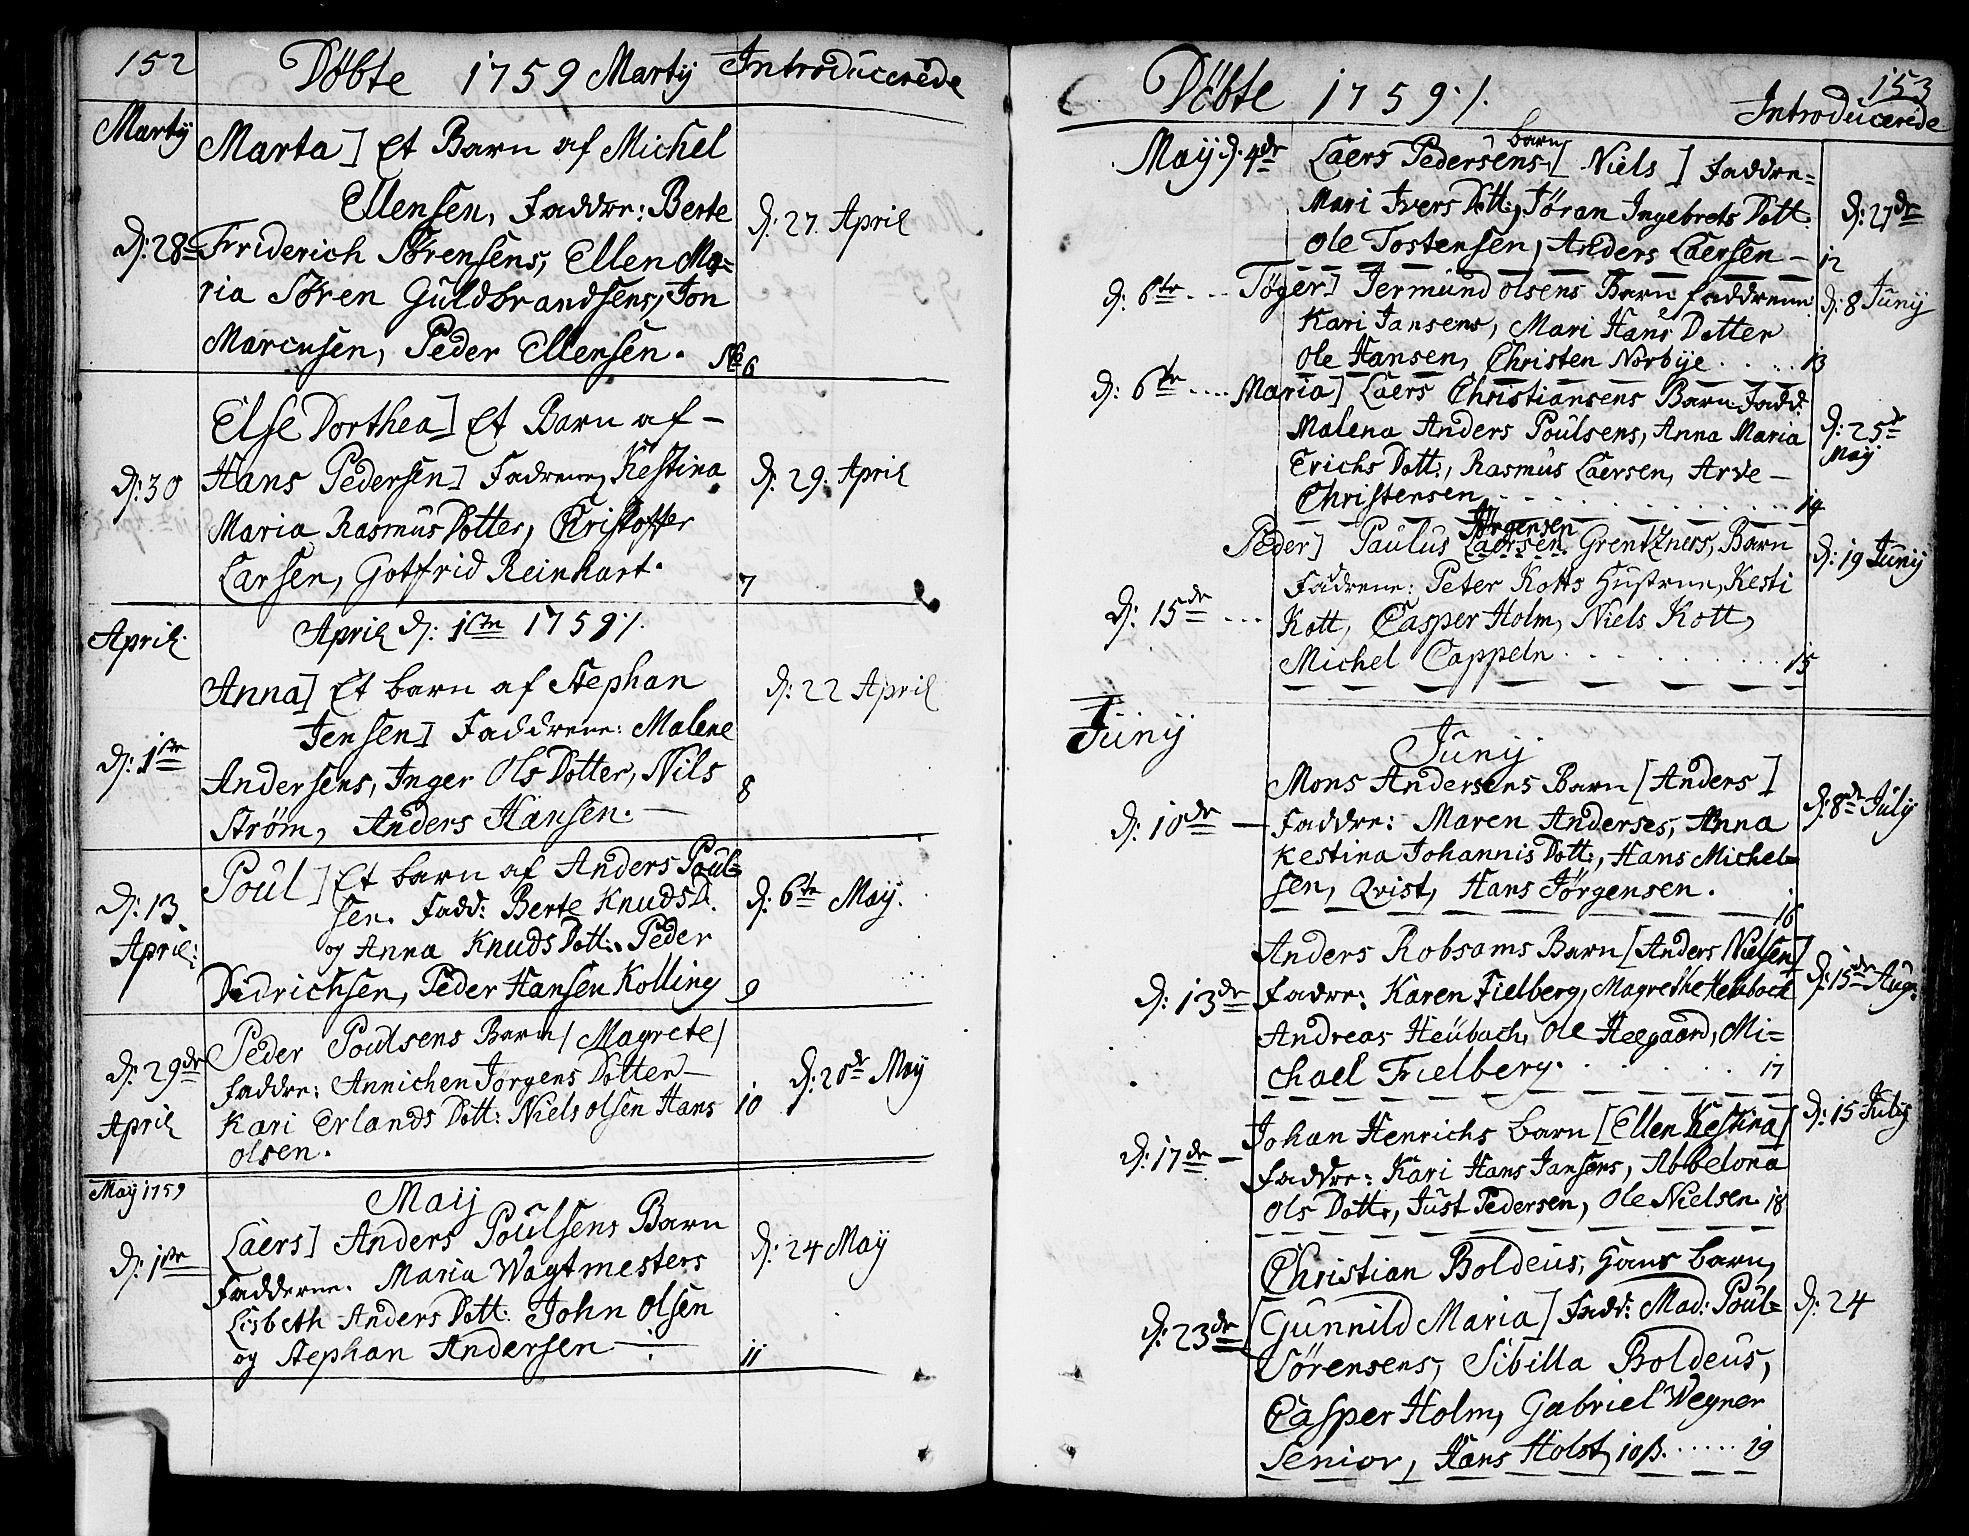 152 Döbte 1759 Martij Introducerede
Martij Marta] Et Barn af Michel
Ellensen, Faddre: Berte
d: 28 Friderich Sörensens, Ellen Ma=
d: 27. April
ria Sören Guldbrandsens, Jon
Marcusen, Peder Ellensen. No 6
Else Dorthea] Et Barn af -
d: 30 Hans Pedersen] Fadrene, Kestina
d: 29. April
Maria Rasmus Dotter, Christoffer
Larsen, Gotfrid Reinhart. 7
April. April d: 1ste 1759 ./.
Anna] Et barn af Stephan
d: 22 April
Jensen] Faddrene: Malene
d: 1ste Andersens, Inger Ols Dotter, Nils
Strøm, Anders Hansen. — 8
Poul] Et barn af Anders Poul=
d: 13 April: sen. Fadd: Berte Knuds D.
d: 6te May.
og Anna Knuds Dott: Peder
Didrichsen, Peder Hansen Kolling 9
Peder Poulsens Barn / Magrete /
d: 29de April Faddre: Annichen Jørgens Dotter —
d: 20de May
Kari Erlands Dott: Niels olsen Hans 10
olsen.
May 1759 Maij
Laers] Anders Poulsens Barn
d: 1ste Fadderne. Maria Wagtmesters
d: 24 May
Lisbeth Anders Dott: John Olsen
og Stephan Andersen — 11
Döbte 1759 ./. 153
Introducerede
May d. 4de Laers Pedersens barn [Niels] Faddre=
Mari Ivers Dott:, Jöran Ingebrets Dott:
d: 27de
Ole Tostensen, Anders Laersen — 12
d: 6te ... Töger] Jermund olsens Barn faddrene
d: 8 Junij
Kari Jansens, Mari Hans Dotter
Ole Hansen, Christen Norbye .... 13
d: 6te .... Maria] Laers Christiansens Barn Fadd.
Malena Anders Poulsens, Anna Maria
d: 25te May
Erichs Dott:, Rasmus Laersen, Arve —
Christensen ..... 14
Jörgensen
Peder] Paulus Laersen Grentzners, Barn
d: 19 Junij
Fadrene: Peter Kotts Hustrue, Kesti
d: 15de ... Kott, Casper Holm, Niels Kott,
Michel Cappeln ..... 15
Junij
Junij
Mons Andersens Barn [Anders]
d: 8de July
d: 10de — Faddre: Maren Anderses, Anna
Kestina Johannis Dott:, Hans Michel=
sen, Qvist, Hans Jörgensen. 16
Anders Robsams Barn [Anders Nielsen]
d: 13de Fadre: Karen Fielberg, Magrethe Heubach
d: 15de Aug:
Andreas Heubach, Ole Heegaard, Mi=
chael Fielberg. ..... 17
Johan Henrichs barn [Ellen Kestina]
d: 15 July
d: 17de — Faddre: Kari Hans Jansens, Abbelona
Ols Dott:, Just Pedersen, Ole Nielsen. 18
Christian Boldeus, Hans barn,
d: 23de [Gunnild Maria] Fadd: Mad: Poul=
d: 24
Sörensens, Sibilla Boldeus,
Casper Holm, Gabriel Wegner
Senior, Hans Holst, 10 ß. ..... 19